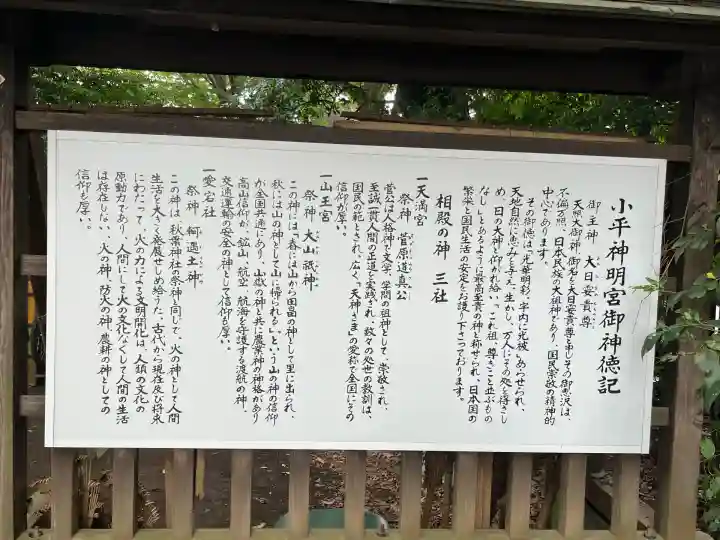 小平神明宮御神徳記
御主神　大日孁貴尊
天照大御神の御名を大日孁貴尊と申しその御恵沢は、
不偏万照、日本民族の大祖神であり、国民宗敬の精神的
中心であります。
その御徳は「光華明彩、宇内に光被」あらせられ、
天地自然に恵みを与え、生かし、万人にその処を得さし
め、日の大神と仰がれ給い「これ祖、尊きこと並ぶもの
なし」とあるように最高至貴の神と称せられ、日本国の
繁栄と国民生活の安定をお護り下さっております。
相殿の神　三社
一天満宮
祭神　菅原道真公
菅公は人格神で文学、学問の祖神として、崇敬され、
至誠一貫人間の正道を実践され、数々の処世の教訓は、
国民の範とされ、広く「天神さま」の愛称で全国にその
信仰が厚い。
一山王宮
祭神　大山祇神
この神には「春には山から田畠の神として里に出られ、
秋には山の神として山に帰られる」という山の神の信仰
が全国共通にあり、山嶽の神と共に農業神の神格があり
高山信仰が、鉱山、航空、航海を守護する渡航の神、
交通運輸の安全の神として信仰も厚い。
一愛宕社
祭神　軻遇土神
この神は、秋葉神社の祭神と同じで、火の神として人間
生活を大きく発展せしめ給うた、古代から現在及び将来
にわたって、火の力による文明開化は、人類の文化の
原動力であり、人間にして火の文化なくして人間の生活
は存在しない、火の神、防火の神、農耕の神としての
信仰も厚い。